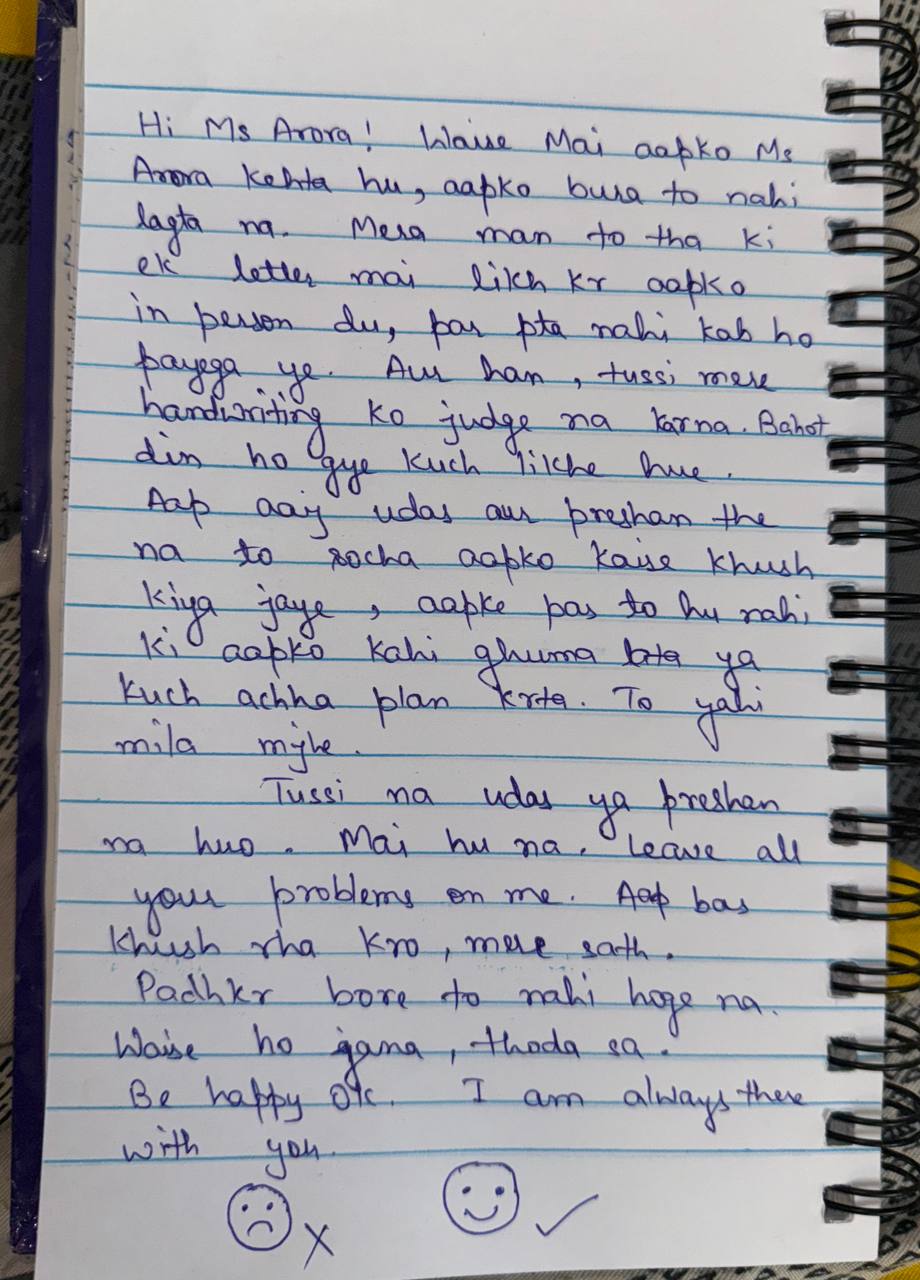 Hi Ms Arora! Waise Mai aapko Ms
Arora kehta hu, aapko bura to nahi
lagta na. Mera man to tha ki
ek letter mai likh kr aapko
in person du, par pta nahi kab ho
payega ye. Aur han, tussi mere
handwriting ko judge na karna. Bahot
din ho gye kuch likhe hue.
Aap aaj udas aur preshan the
na to socha aapko kaise khush
kiya jaye, aapke pas to hu nahi
ki aapko kahi ghuma lata ya
kuch achha plan krta. To yahi
mila mjhe.
Tussi na udas ya preshan
na huo. Mai hu na. Leave all
your problems on me. Aap bas
khush rha kro, mere sath.
Padhkr bore to nahi hoge na.
Waise ho jana, thoda sa.
Be happy ok. I am always there
with you.